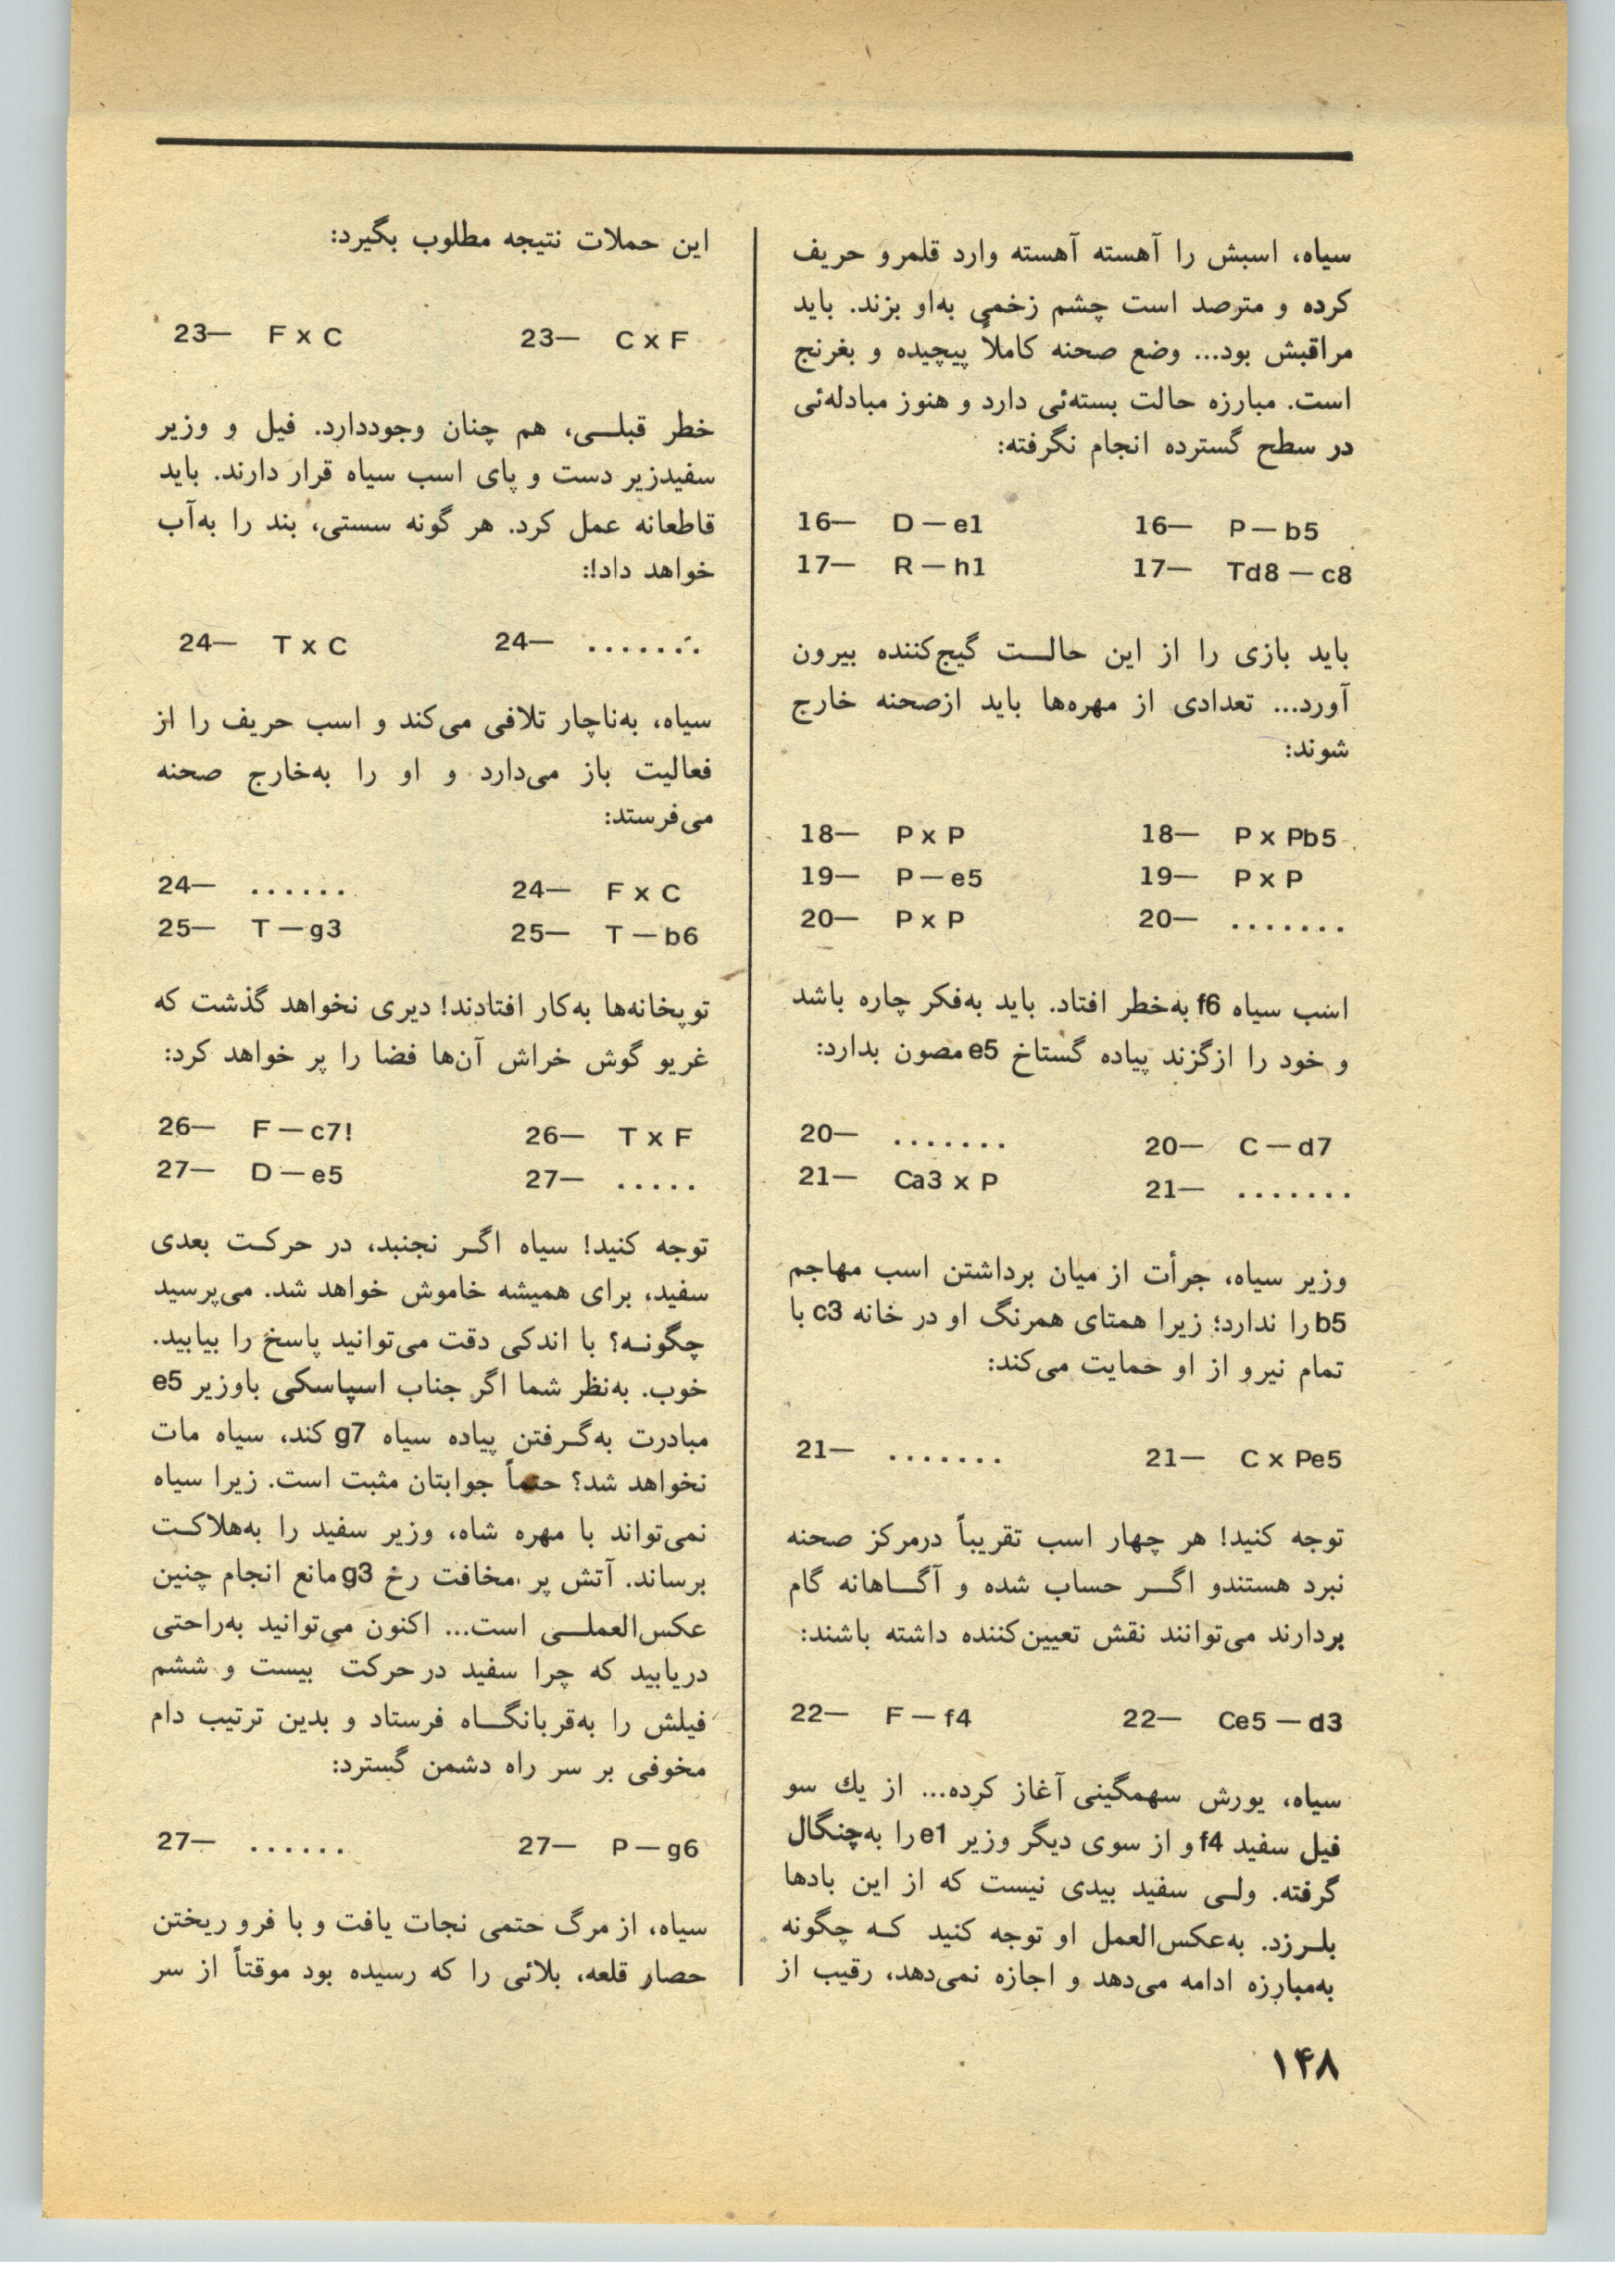 سیاه، اسبش را آهسته آهسته وارد قلمرو حریف
کرده و مترصد است چشم زخمی به‌او بزند. باید
مراقبش بود... وضع صحنه کاملاً پیچیده و بغرنج
است. مبارزه حالت بسته‌ئی دارد و هنوز مبادله‌ئی
در سطح گسترده انجام نگرفته:
16— D — e1 16— P — b5
17— R — h1 17— Td8 — c8
باید بازی را از این حالــت گیج‌کننده بیرون
آورد... تعدادی از مهره‌ها باید ازصحنه خارج
شوند:
18— P x P 18— P x Pb5
19— P — e5 19— P x P
20— P x P 20— .......
اسب سیاه f6 به‌خطر افتاد. باید به‌فکر چاره باشد
و خود را ازگزند پیاده گستاخ e5 مصون بدارد:
20— ....... 20— C — d7
21— Ca3 x P 21— .......
وزیر سیاه، جرأت از میان برداشتن اسب مهاجم
b5 را ندارد؛ زیرا همتای همرنگ او در خانه c3 با
تمام نیرو از او حمایت می‌کند:
21— ....... 21— C x Pe5
توجه کنید! هر چهار اسب تقریباً درمرکز صحنه
نبرد هستندو اگــر حساب شده و آگــاهانه گام
بردارند می‌توانند نقش تعیین‌کننده داشته باشند:
22— F — f4 22— Ce5 — d3
سیاه، یورش سهمگینی آغاز کرده... از یك سو
فیل سفید f4 و از سوی دیگر وزیر e1 را به‌چنگال
گرفته. ولـی سفید بیدی نیست که از این بادها
بلـرزد. به‌عکس‌العمل او توجه کنید کـه چگونه
به‌مبارزه ادامه می‌دهد و اجازه نمی‌دهد، رقیب از
این حملات نتیجه مطلوب بگیرد:
23— F x C 23— C x F
خطر قبلــی، هم چنان وجوددارد. فیل و وزیر
سفیدزیر دست و پای اسب سیاه قرار دارند. باید
قاطعانه عمل کرد. هر گونه سستی، بند را به‌آب
خواهد داد!:
24— T x C 24— .......
سیاه، به‌ناچار تلافی می‌کند و اسب حریف را از
فعالیت باز می‌دارد و او را به‌خارج صحنه
می‌فرستد:
24— ...... 24— F x C
25— T — g3 25— T — b6
توپخانه‌ها به‌کار افتادند! دیری نخواهد گذشت که
غریو گوش خراش آن‌ها فضا را پر خواهد کرد:
26— F — c7! 26— T x F
27— D — e5 27— .....
توجه کنید! سیاه اگـر نجنبد، در حرکـت بعدی
سفید، برای همیشه خاموش خواهد شد. می‌پرسید
چگونـه؟ با اندکی دقت می‌توانید پاسخ را بیابید.
خوب. به‌نظر شما اگر جناب اسپاسکی باوزیر e5
مبادرت به‌گـرفتن پیاده سیاه g7 کند، سیاه مات
نخواهد شد؟ حتماً جوابتان مثبت است. زیرا سیاه
نمی‌تواند با مهره شاه، وزیر سفید را به‌هلاکـت
برساند. آتش پر مخافت رخ g3 مانع انجام چنین
عکس‌العملــی است... اکنون می‌توانید به‌راحتی
دریابید که چرا سفید در حرکت بیست و ششم
فیلش را به‌قربانگــاه فرستاد و بدین ترتیب دام
مخوفی بر سر راه دشمن گسترد:
27— ...... 27— P — g6
سیاه، از مرگ حتمی نجات یافت و با فرو ریختن
حصار قلعه، بلائی را که رسیده بود موقتاً از سر
۱۴۸